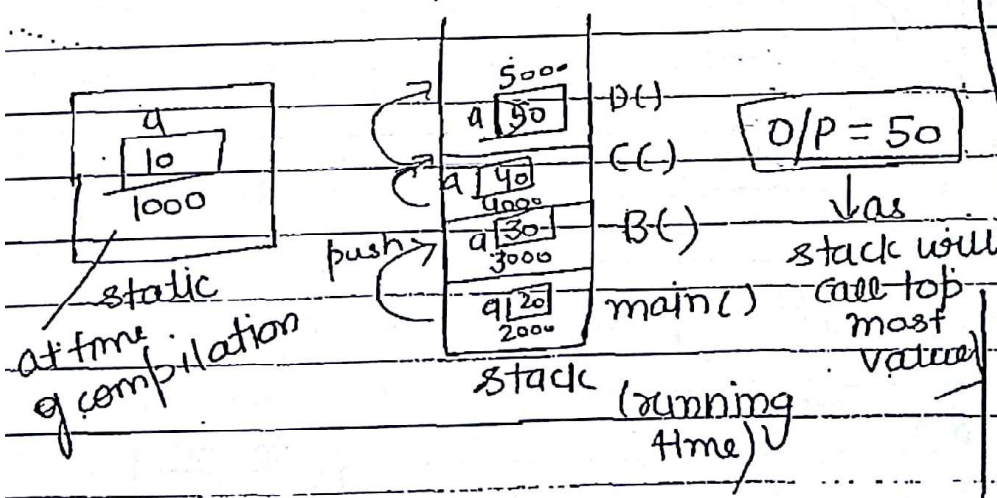 a
10
1000
static
at time
of compilation
push
5000
a 50
D()
a 40
4000
C()
a 30
3000
B()
a 20
2000
main()
stack
(running
time)
O/P = 50
as
stack will
call top
most
value)